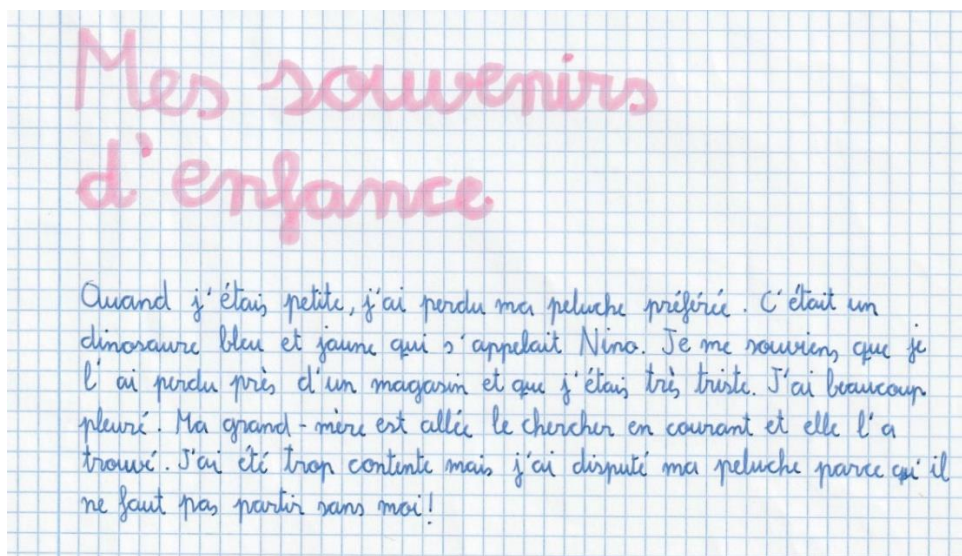 Mes souvenirs
d'enfance
Quand j'étais petite, j'ai perdu ma peluche préférée. C'était un
dinosaure bleu et jaune qui s'appelait Nino. Je me souviens que je
l'ai perdu près d'un magasin et que j'étais très triste. J'ai beaucoup
pleuré. Ma grand-mère est allée le chercher en courant et elle l'a
trouvé. J'ai été trop contente mais j'ai disputé ma peluche parce qu'il
ne faut pas partir sans moi!